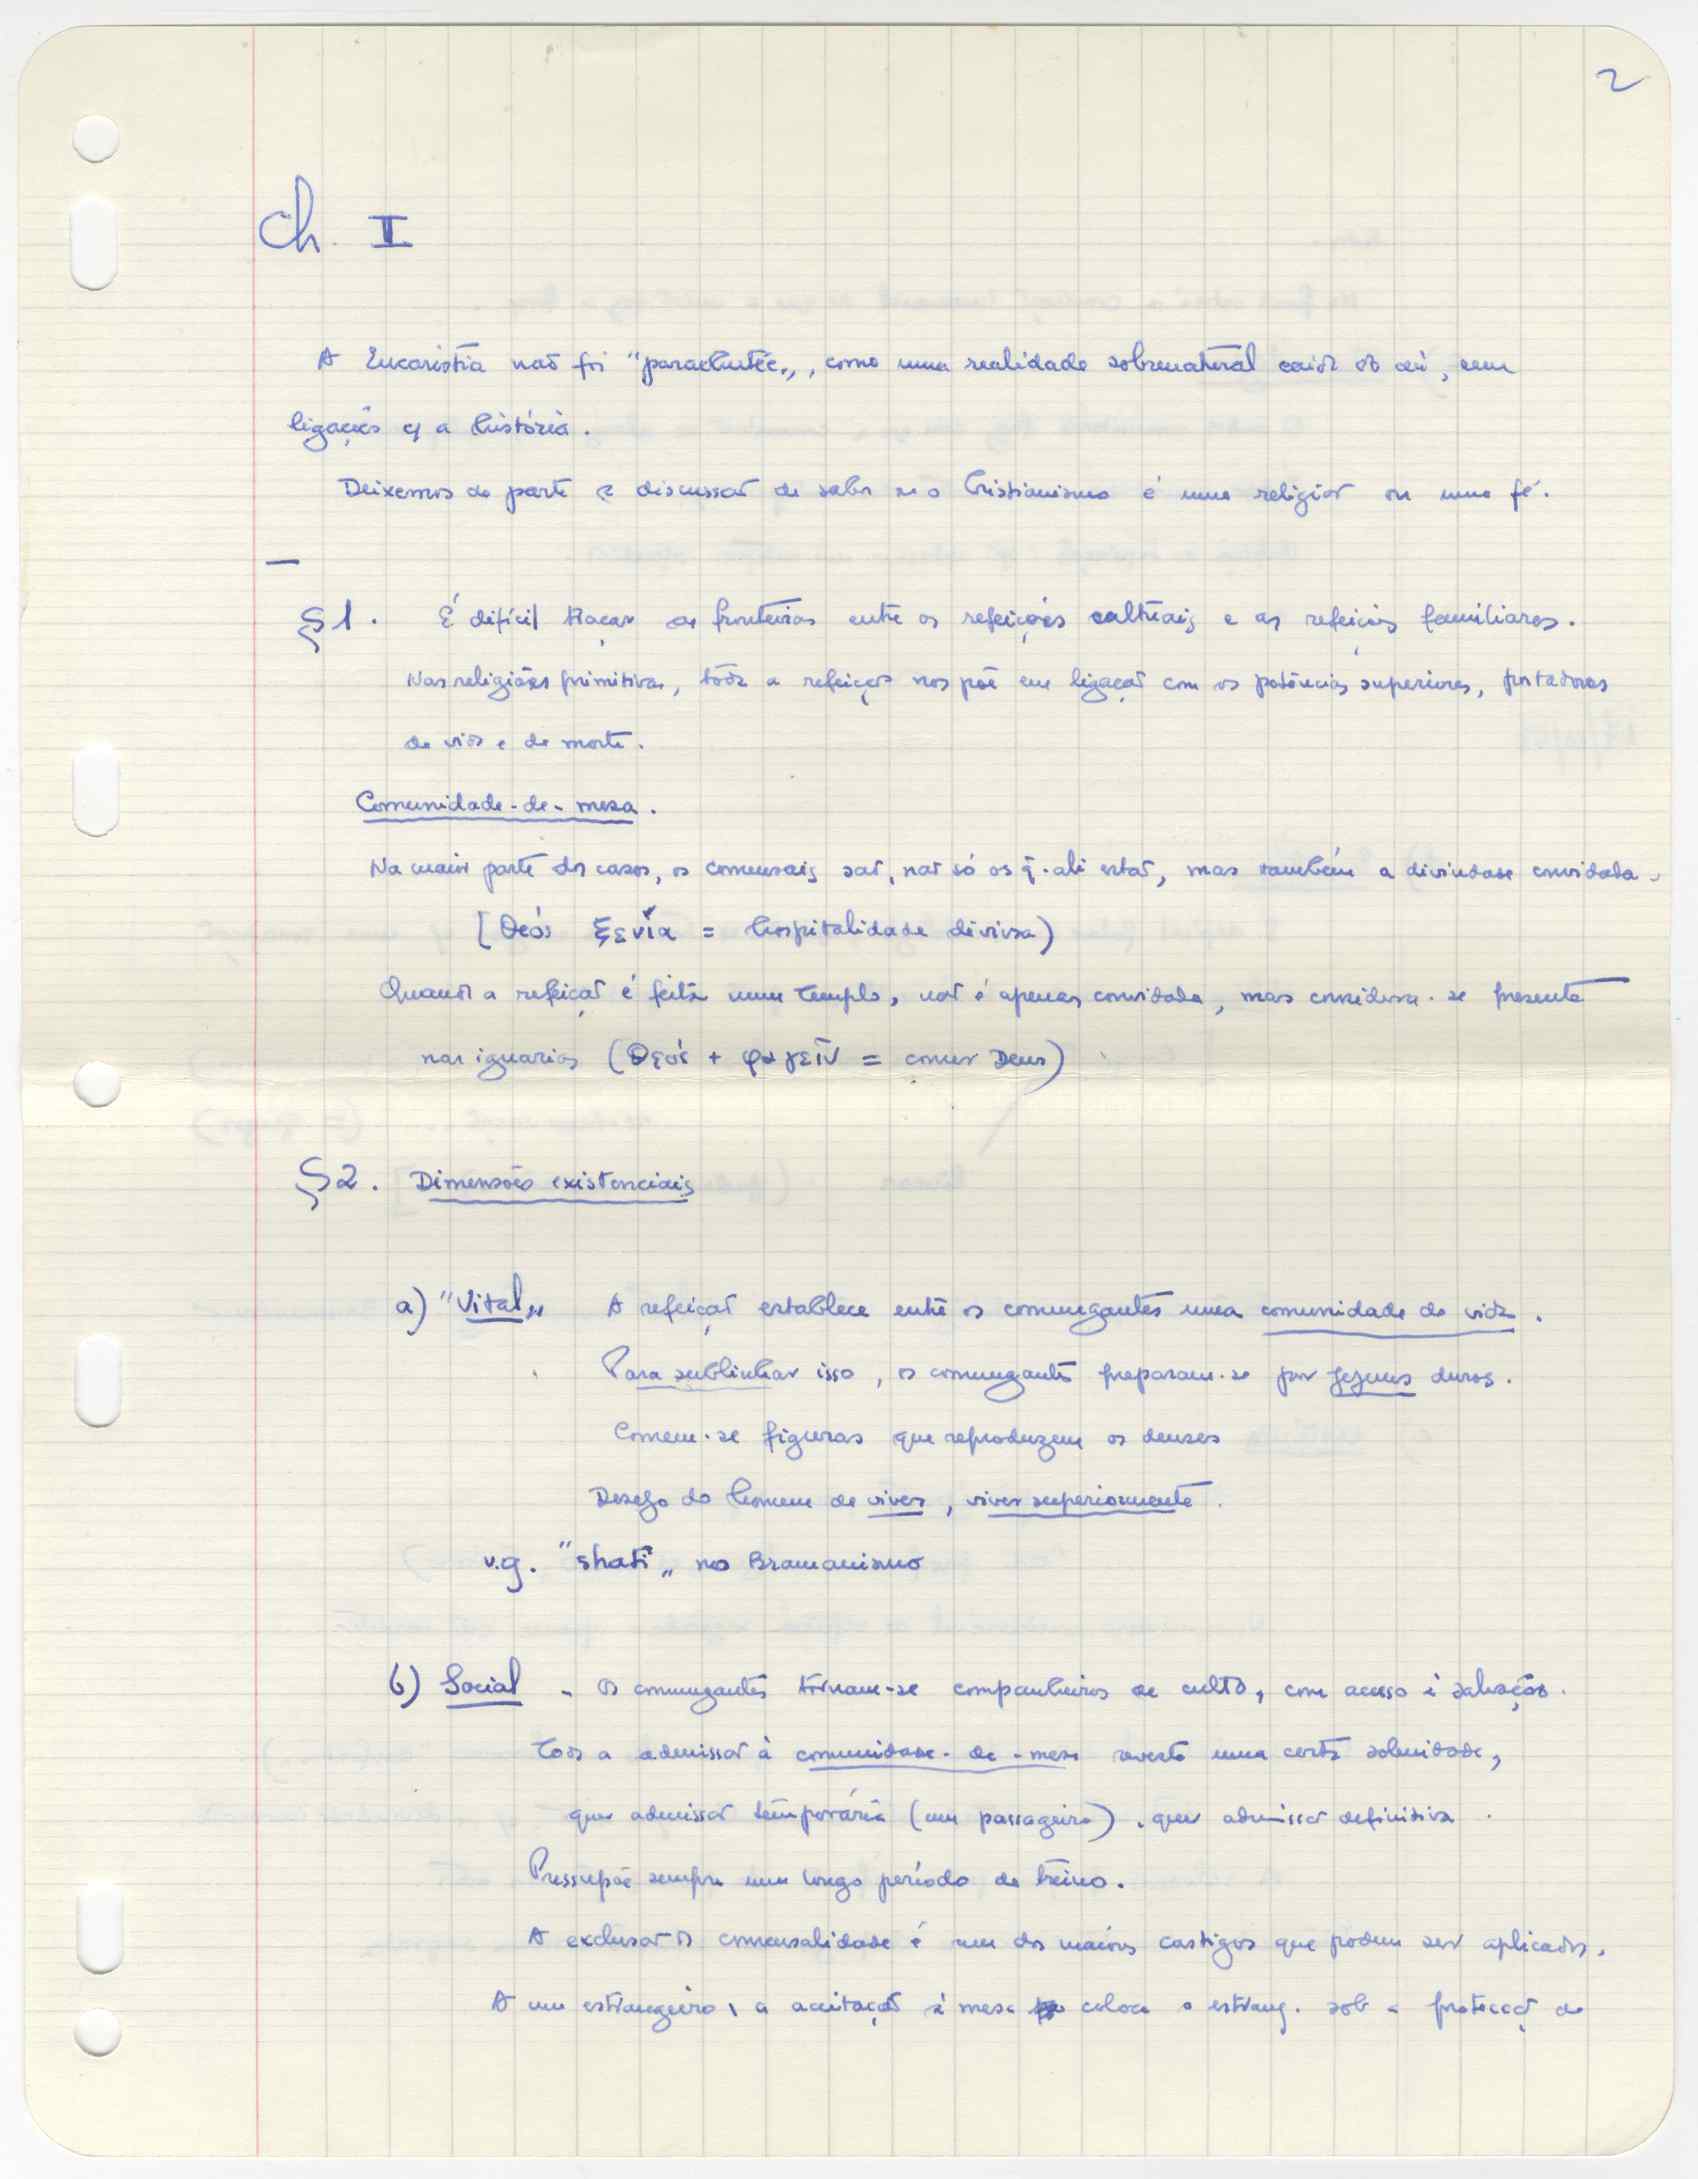 2
Ch. I
A Eucaristia não foi "parachutée", como uma realidade sobrenatural caída do céu, sem
ligações c/ a história.
Deixemos de parte a discussão de saber se o Cristianismo é uma religião ou uma fé.
—
§1. É difícil traçar as fronteiras entre as refeições cultuais e as refeições familiares.
Nas religiões primitivas, toda a refeição nos põe em ligação com as potências superiores, portadoras
de vida e de morte.
Comunidade-de-mesa.
Na maior parte dos casos, os comensais são, não só os q. ali estão, mas também a divindade convidada.
[Θεός ξενία = hospitalidade divina)
Quando a refeição é feita num templo, não é apenas convidada, mas considera-se presente
nas iguarias (Θεός + φαγεῖν = comer Deus)
§2. Dimensões existenciais
a) "Vital" A refeição establece entre os comungantes uma comunidade de vida.
Para sublinhar isso, os comungantes preparam-se por jejuns duros.
Comem-se figuras que reproduzem os deuses
Desejo do homem de viver, viver superiormente.
v.g. "shati" no Bramanismo
b) Social - Os comungantes tornam-se companheiros de culto, com acesso à salvação.
Toda a admissão à comunidade-de-mesa reveste uma certa solenidade,
quer admissão temporária (um passageiro), quer admissão definitiva.
Pressupõe sempre um longo período de treino.
A exclusão da comensalidade é um dos maiores castigos que podem ser aplicados.
A um estrangeiro, a aceitação à mesa coloca o estrang. sob a protecção de